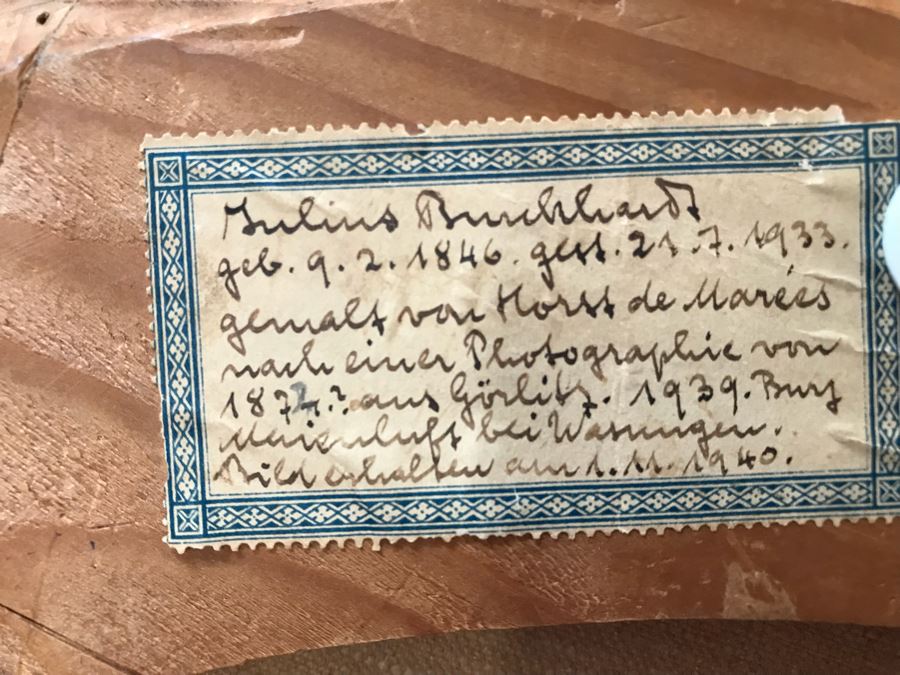 Julius Burckhardt
geb. 9. 2. 1846. gest. 21. 7. 1933.
gemalt von Horst de Marées
nach einer Photographie von
1874.? aus Görlitz. 1939. Burg
Maienluft bei Wasungen.
Bild erhalten am 1. 11. 1940.